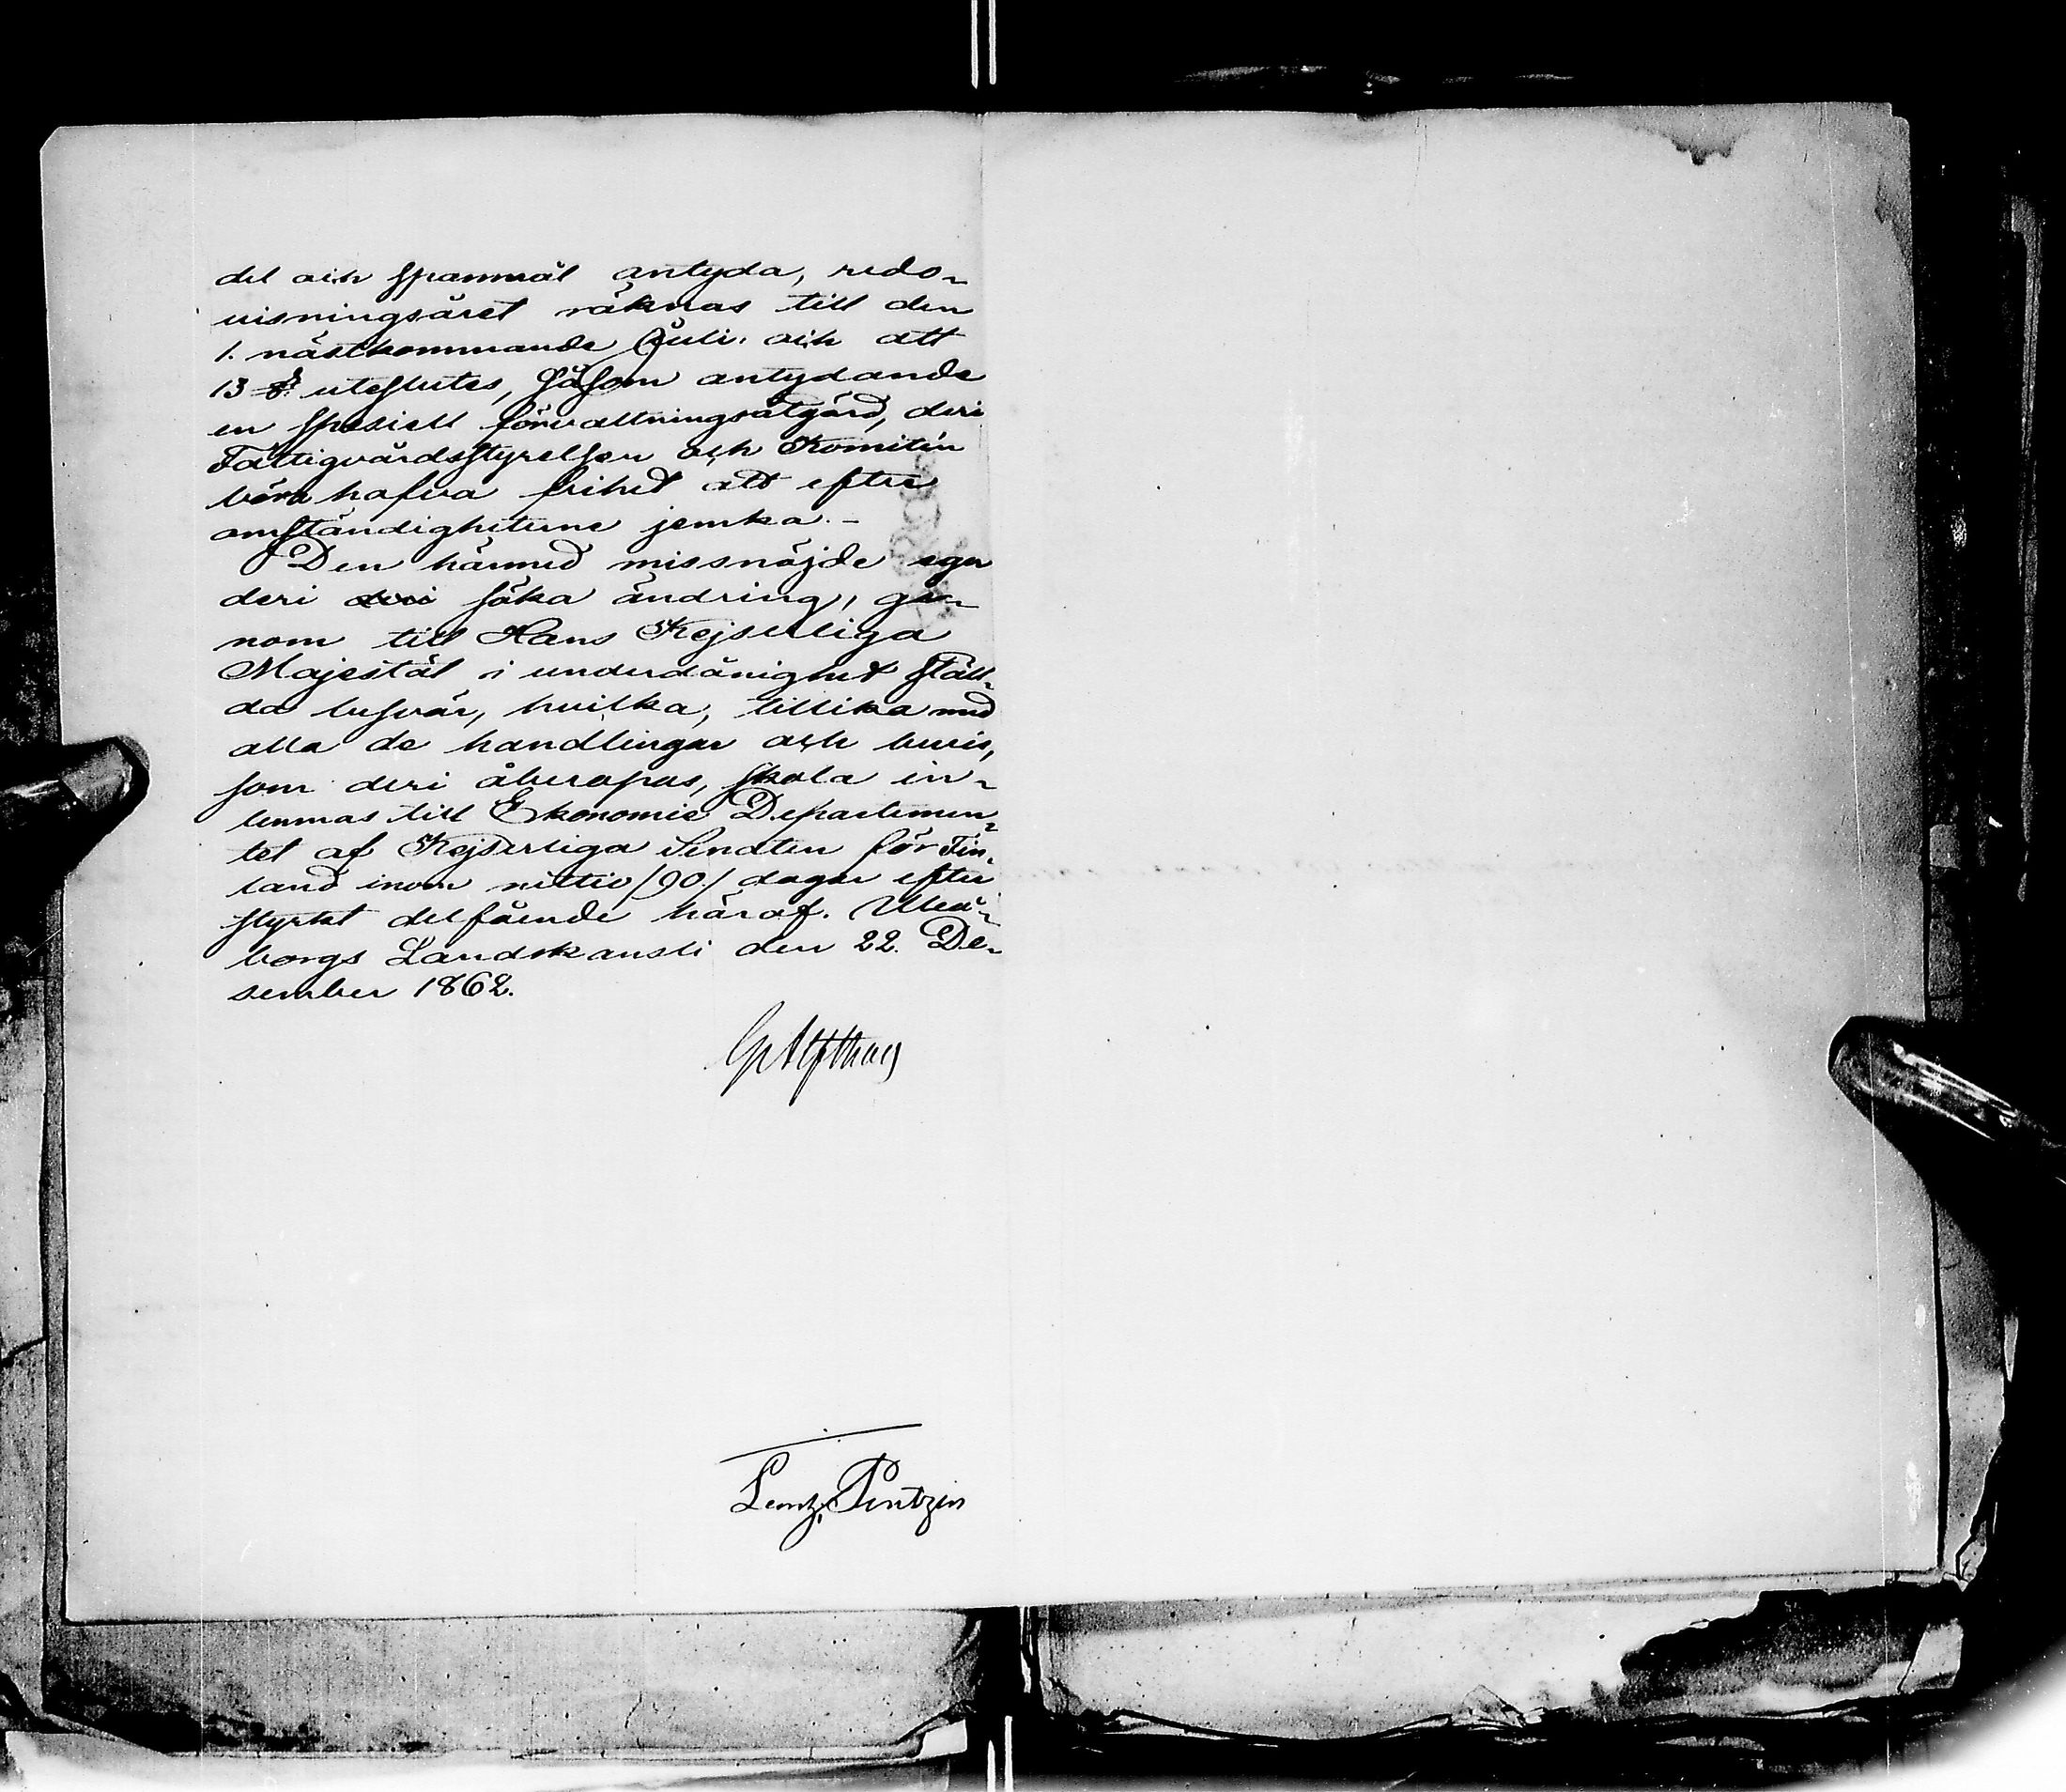 del och spannmål antyda, redo-
visningsåret räknas till den
1. nästkommande Juli, och att
13 §. uteslutes, såsom antydande
en spesiell förvaltningsåtgärd, deri
Fattigvårdsstyrelsen och Komitén
böra hafva frihet att efter
omständigheterne jemka. -
Den härmed missnöjde eger
deri deri söka ändring, ge-
nom till Hans Kejserliga
Majestät i underdånighet ställ-
da besvär, hvilka, tillika med
alla de handlingar och bevis,
som deri åberopas, skola in-
lemnas till Ekonomie Departemen-
tet af Kejserliga Senaten för Fin-
land inom nittio /90./ dagar efter
styrkt delfående häraf. Uleå-
borgs Landskansli den 22. De-
sember 1862.
G Alfthan
Lenz, Pentzin